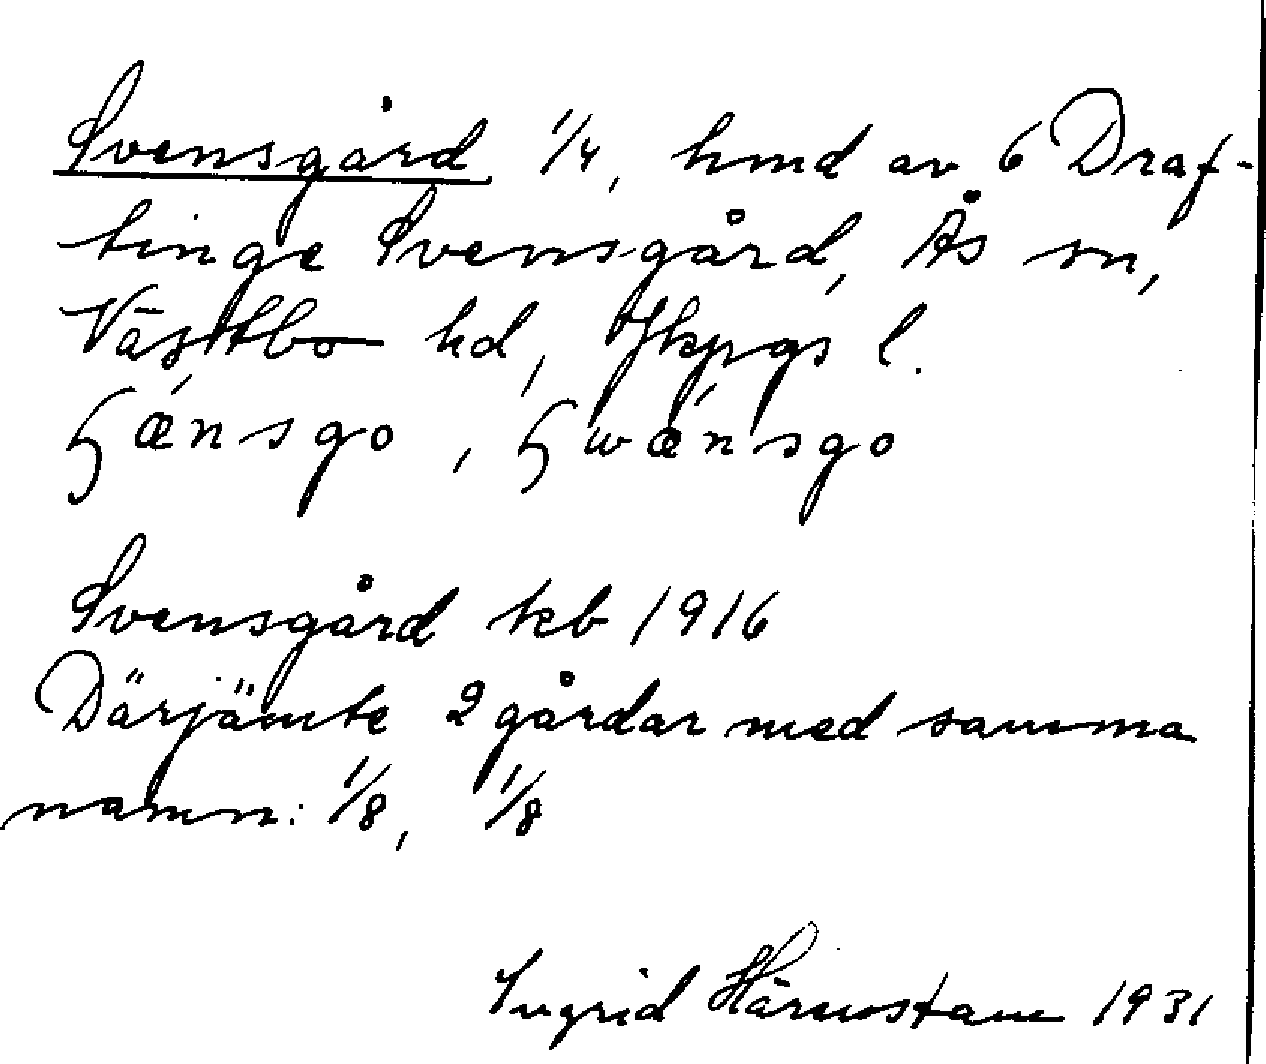 Svensgård 1/4, hmd av 6 Draf-
tinge Svensgård, Ås sn,
Västbo hd, Jkpgs l.
ɧǽnsgo, ɧwǽnsgo
Svensgård kb 1916
Därjämte 2 gårdar med samma
namn: 1/8, 1/8
Ingrid Härenstam 1931